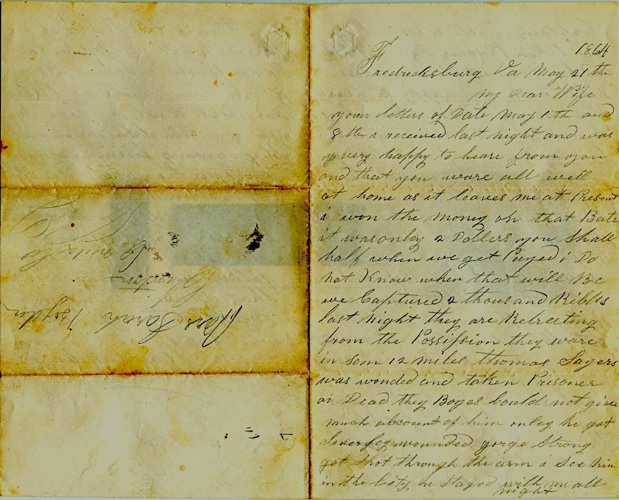 1864
Fredricksburg Va May 21 th
My Dear Wife
your letters of Date May 1 th and
8 th i received last night and was
very happy to heare from you
and that you ware all well
at home as it leaves me at Present
i won the money on that Bate
it was onley 2 Dollers you Shall
half when we get Payed i Do
not Know when that will Be
we Captured 2 thousand Rebbls
last night they are Retreeting
from the Possission they ware
in som 12 miles, thomas Sayers
was wonded and taken Prisoner
or Dead they Boyes Could not give
much account of him onley he got
wounded gorge Strong
got Shot through the arm i See him
in the City, he Stayed with me all
night
Mrs Sarah